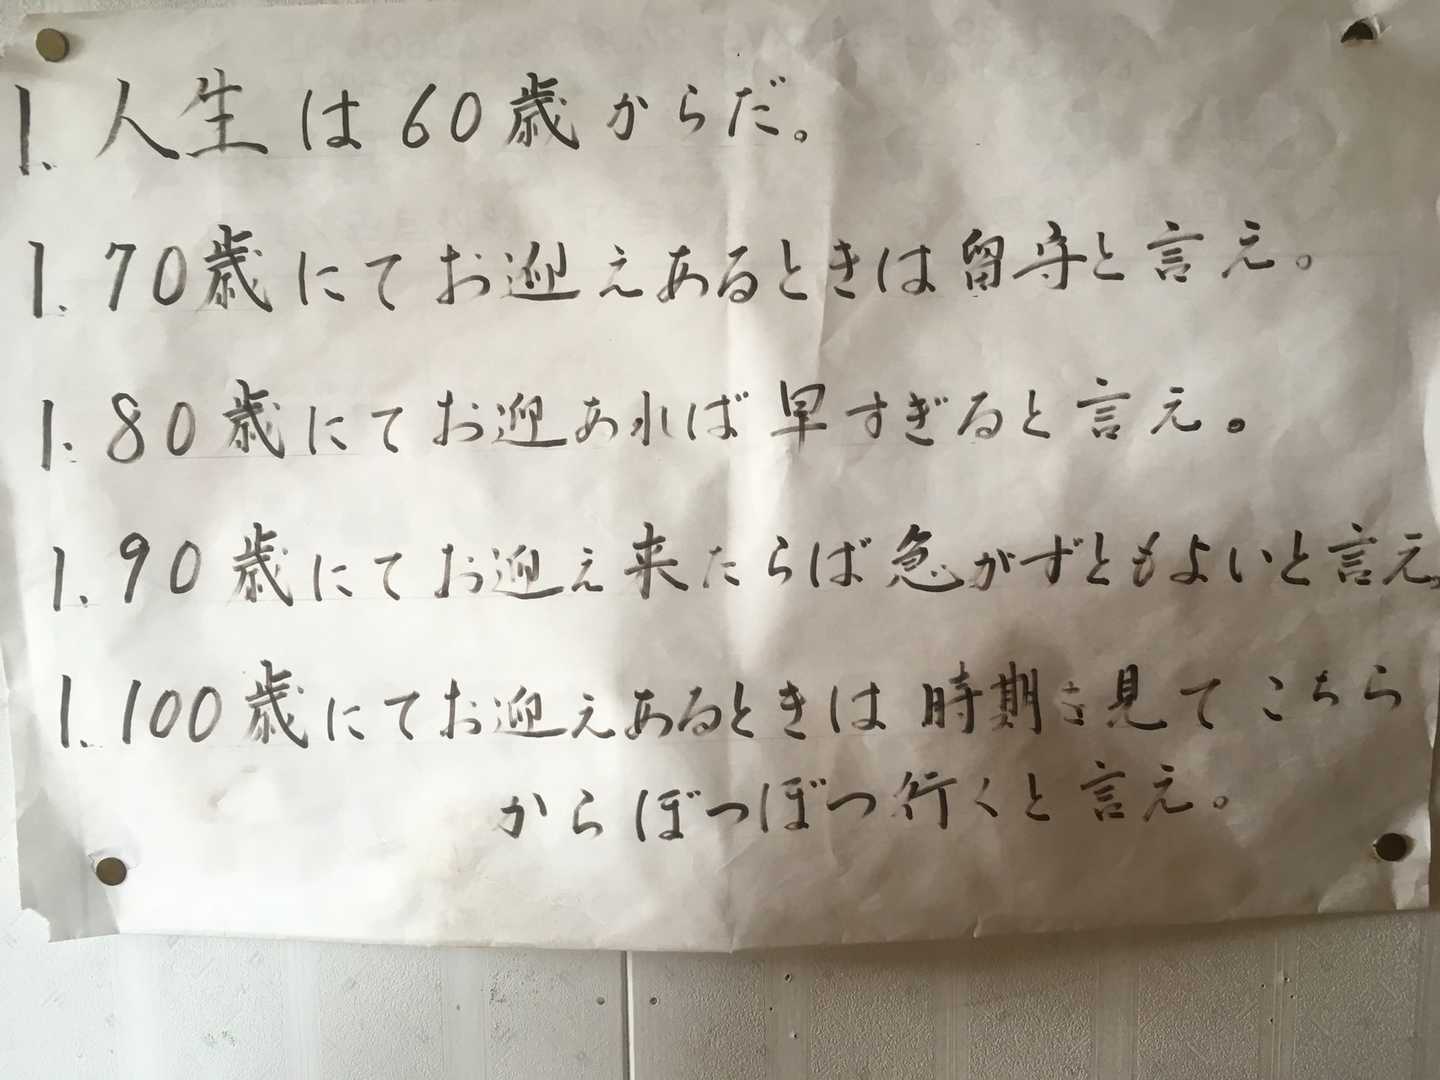 1. 人生は60歳からだ。
1. 70歳にてお迎えあるときは留守と言え。
1. 80歳にてお迎あれば早すぎると言え。
1. 90歳にてお迎え来たらば急がずともよいと言え。
1. 100歳にてお迎えあるときは時期を見てこちら
からぼつぼつ行くと言え。